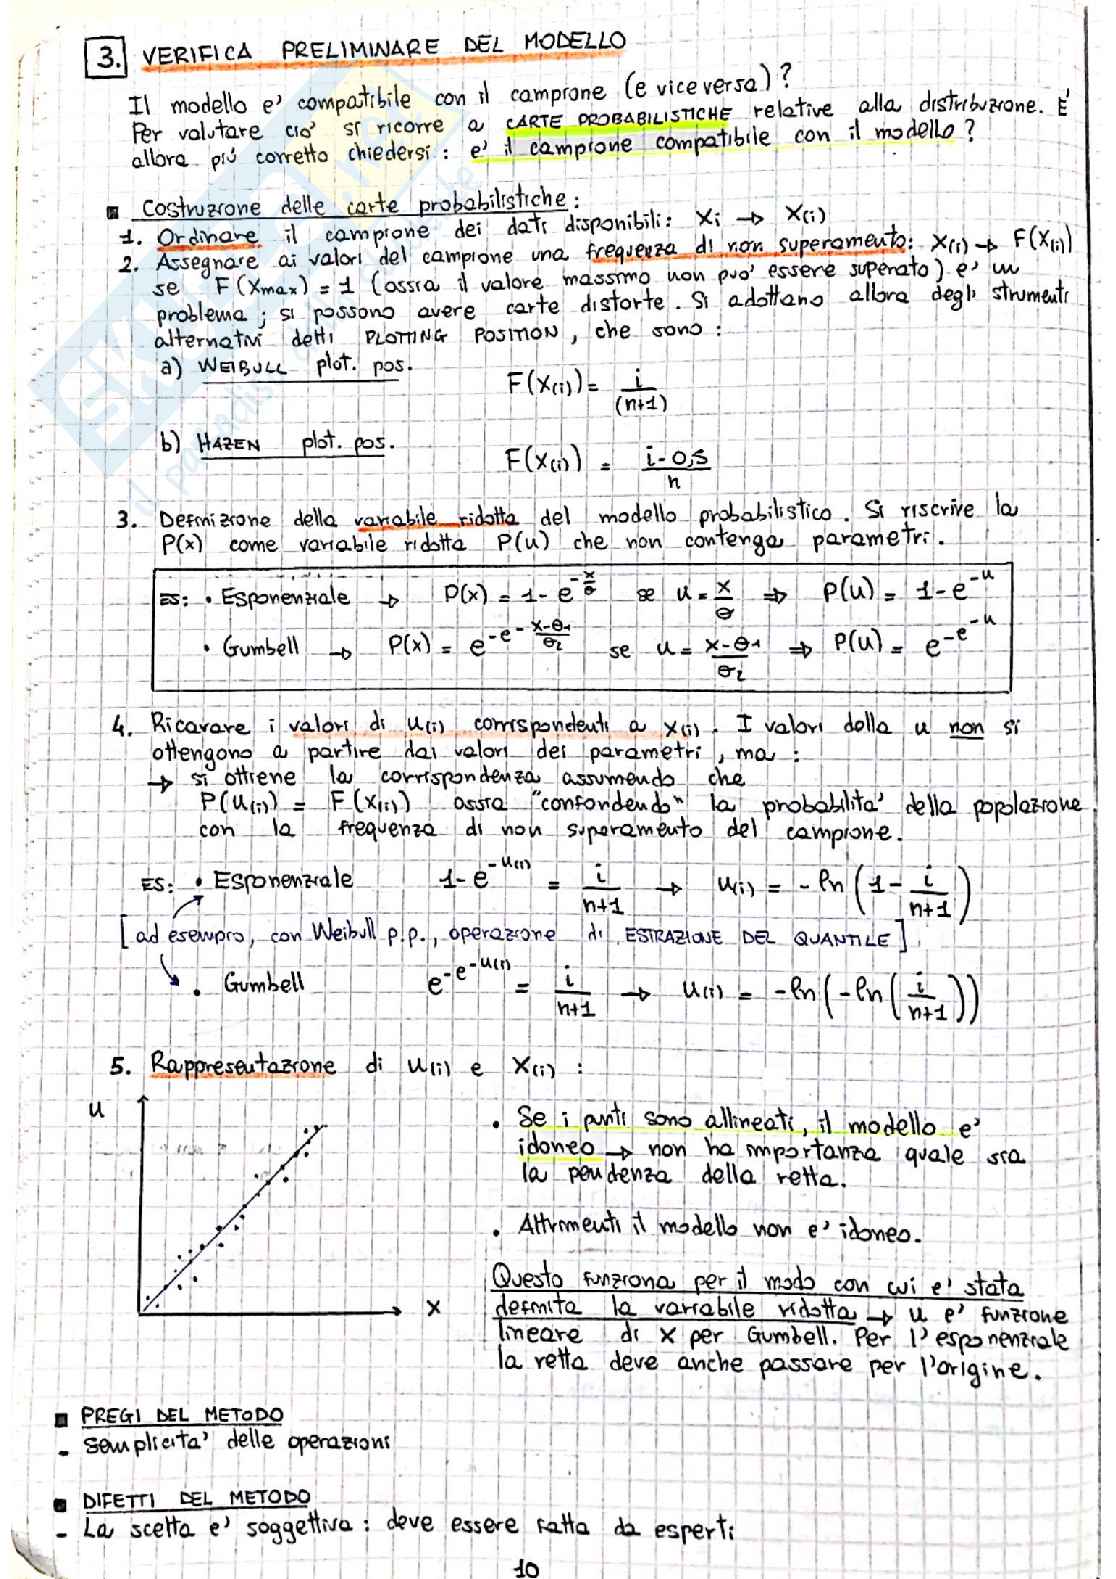 3. VERIFICA PRELIMINARE DEL MODELLO
Il modello e' compatibile con il campione (e viceversa)?
Per valutare cio' si ricorre a CARTE PROBABILISTICHE relative alla distribuzione. E'
allora più corretto chiedersi: e' il campione compatibile con il modello?
Costruzione delle carte probabilistiche:
1. Ordinare il campione dei dati disponibili: Xi → X(i)
2. Assegnare ai valori del campione una frequenza di non superamento: X(i) → F(X(i))
se F(Xmax) = 1 (ossia il valore massimo non puo' essere superato) e' un
problema; si possono avere carte distorte. Si adottano allora degli strumenti
alternativi detti PLOTTING POSITION, che sono:
a) WEIBULL plot. pos. F(X(i)) = i/(n+1)
b) HAZEN plot. pos. F(X(i)) = (i-0,5)/n
3. Definizione della variabile ridotta del modello probabilistico. Si riscrive la
P(x) come variabile ridotta P(u) che non contenga parametri.
ES: • Esponenziale → P(x) = 1-e^(-x/θ) se u = x/θ ⇒ P(u) = 1-e^(-u)
• Gumbell → P(x) = e^(-e^(-(x-θ1)/θ2)) se u = (x-θ1)/θ2 ⇒ P(u) = e^(-e^(-u))
4. Ricavare i valori di u(i) corrispondenti a x(i). I valori della u non si
ottengono a partire dai valori dei parametri, ma:
→ si ottiene la corrispondenza assumendo che
P(u(i)) = F(x(i)) ossia "confondendo" la probabilita' della popolazione
con la frequenza di non superamento del campione.
ES: • Esponenziale 1-e^(-u(i)) = i/(n+1) → u(i) = -ln(1 - i/(n+1))
[ad esempio, con Weibull p.p., operazione di ESTRAZIONE DEL QUANTILE]
• Gumbell e^(-e^(-u(i))) = i/(n+1) → u(i) = -ln(-ln(i/(n+1)))
5. Rappresentazione di u(i) e X(i):
u
x
• Se i punti sono allineati, il modello e'
idoneo → non ha importanza quale sia
la pendenza della retta.
• Altrimenti il modello non e' idoneo.
Questo funziona per il modo con cui e' stata
definita la variabile ridotta → u e' funzione
lineare di x per Gumbell. Per l'esponenziale
la retta deve anche passare per l'origine.
PREGI DEL METODO
- semplicita' delle operazioni
DIFETTI DEL METODO
- La scelta e' soggettiva: deve essere fatta da esperti
10